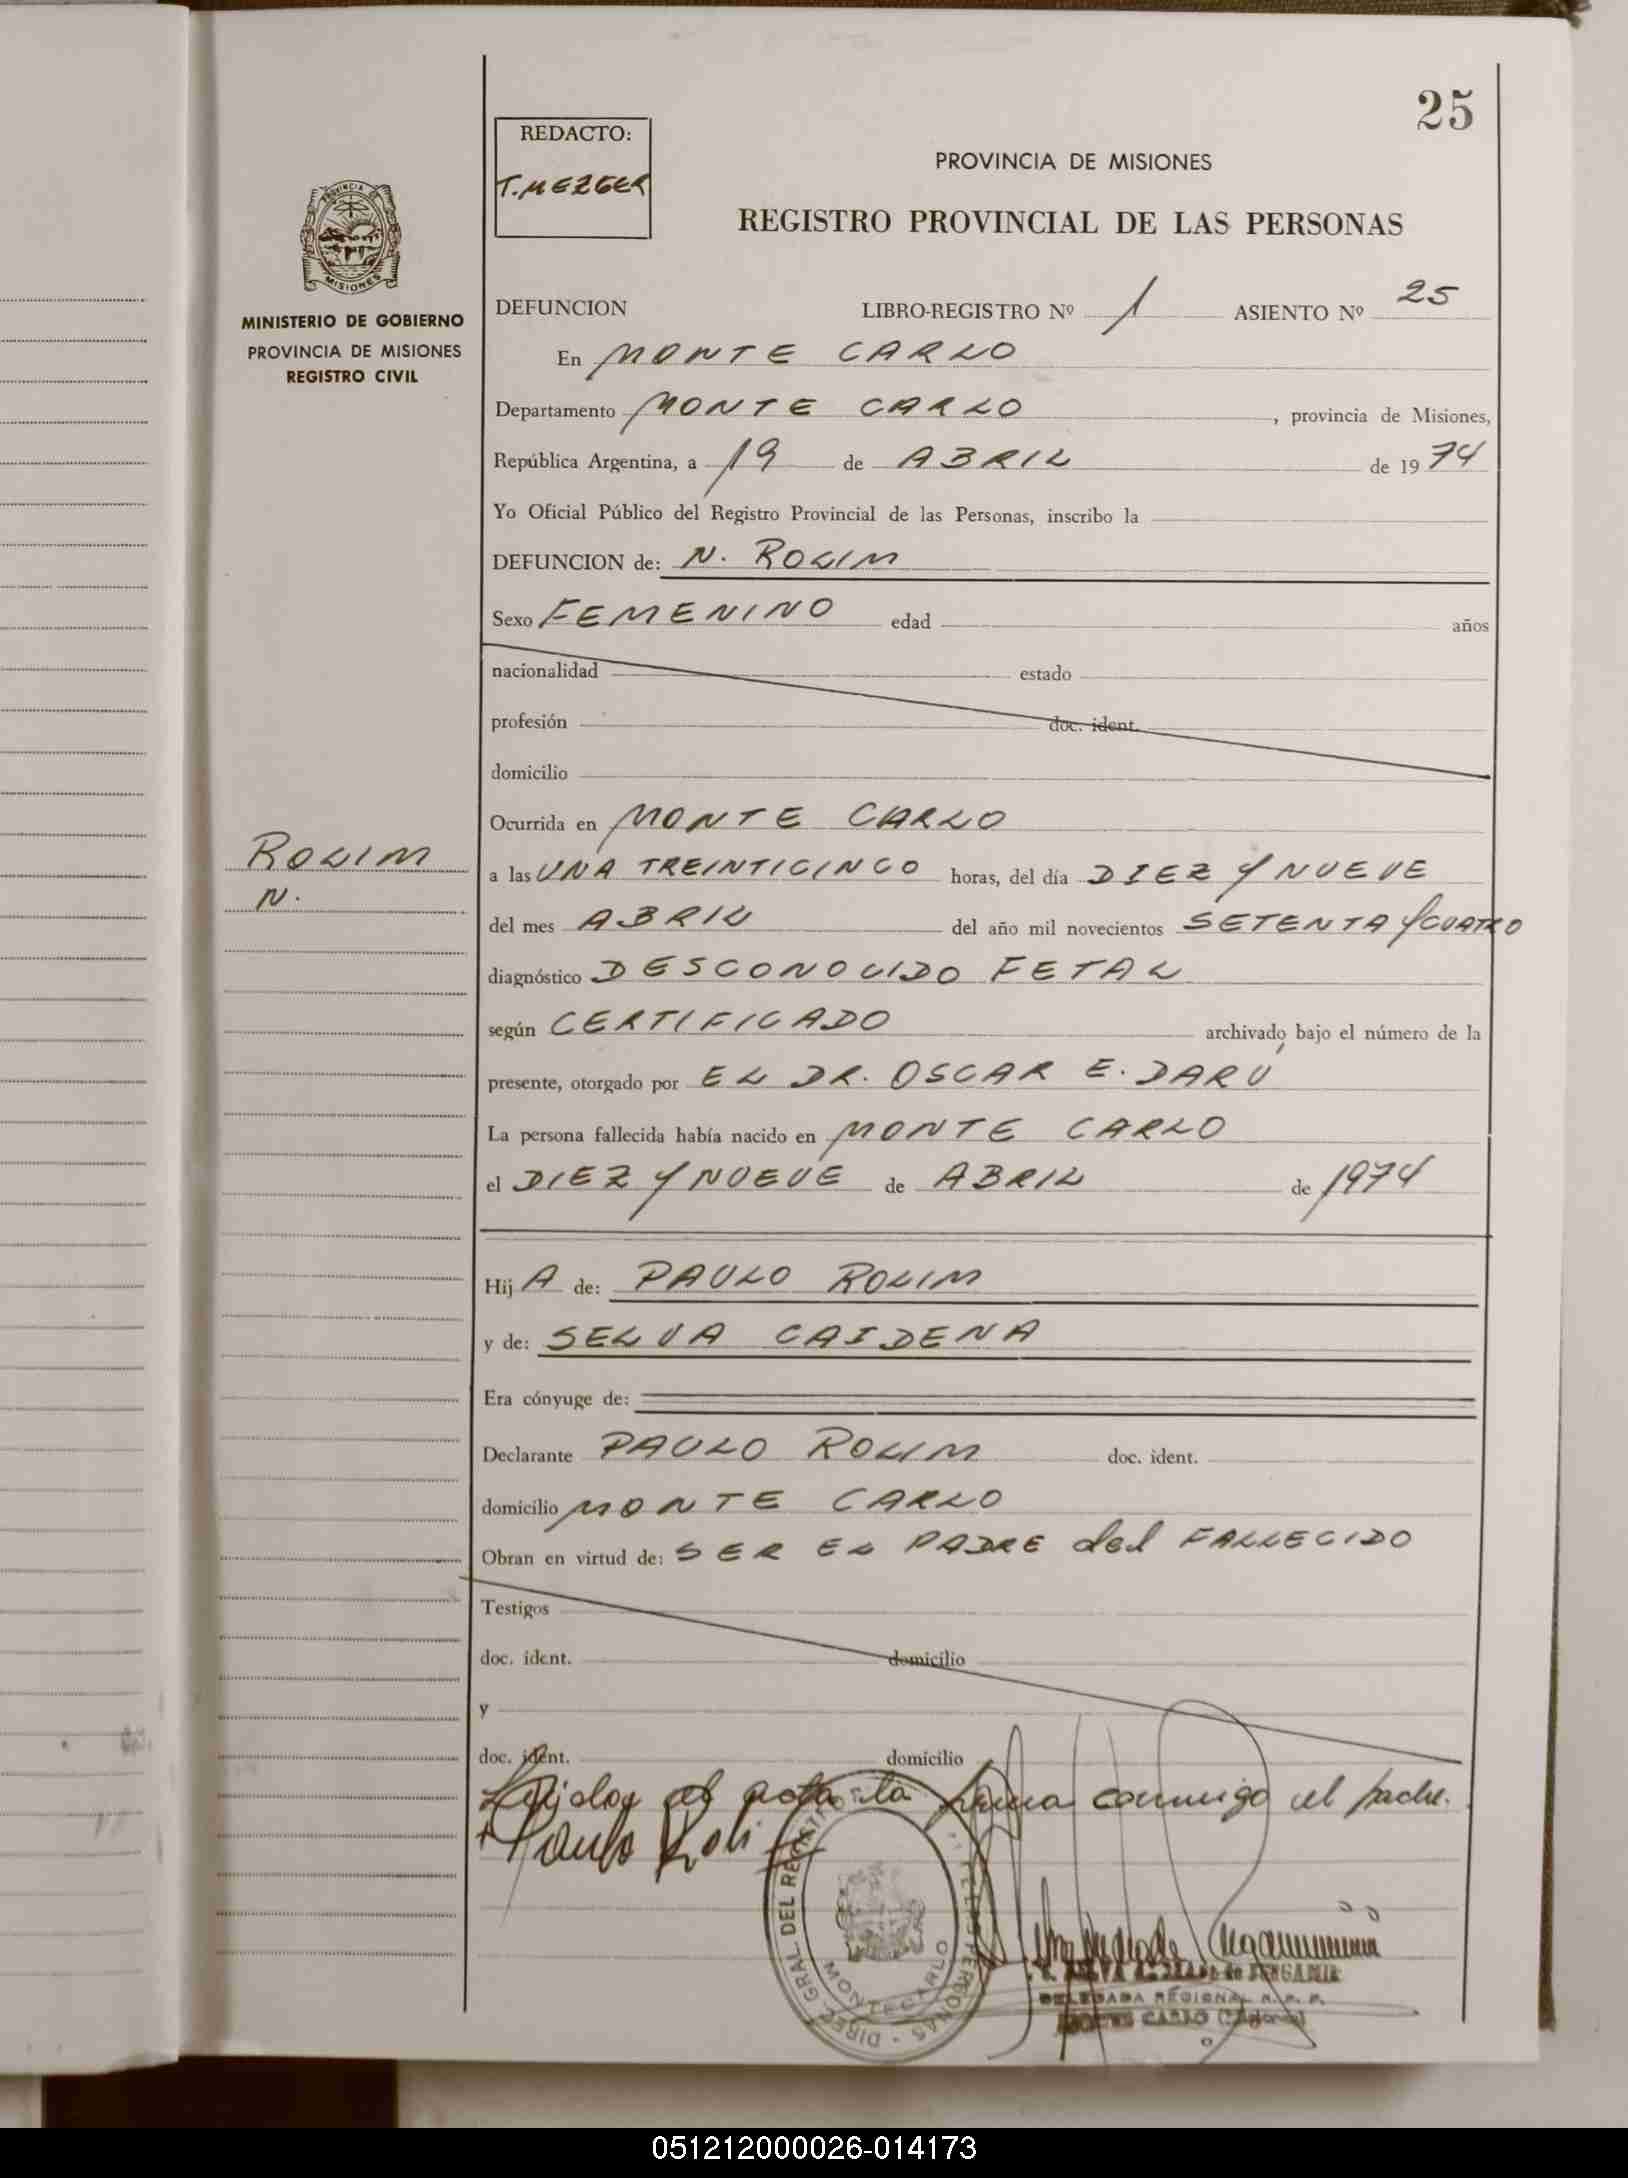 25
REDACTO:
T. MEZGER
PROVINCIA DE MISIONES
REGISTRO PROVINCIAL DE LAS PERSONAS
PROVINCIA DE
MISIONES
MINISTERIO DE GOBIERNO
PROVINCIA DE MISIONES
REGISTRO CIVIL
DEFUNCION LIBRO-REGISTRO Nº 1 ASIENTO Nº 25
En MONTE CARLO
Departamento MONTE CARLO, provincia de Misiones,
República Argentina, a 19 de ABRIL de 1974
Yo Oficial Público del Registro Provincial de las Personas, inscribo la
DEFUNCION de: N. ROLIM
Sexo FEMENINO edad años
nacionalidad estado
profesión doc. ident.
domicilio
Ocurrida en MONTE CARLO
ROLIM
N.
a las UNA TREINTICINCO horas, del día DIEZ Y NUEVE
del mes ABRIL del año mil novecientos SETENTA Y CUATRO
diagnóstico DESCONOCIDO FETAL
según CERTIFICADO archivado bajo el número de la
presente, otorgado por EL DR. OSCAR E. DARÚ
La persona fallecida había nacido en MONTE CARLO
el DIEZ Y NUEVE de ABRIL de 1974
Hij A de: PAULO ROLIM
y de: SELVA CAIDENA
Era cónyuge de:
Declarante PAULO ROLIM doc. ident.
domicilio MONTE CARLO
Obran en virtud de: SER EL PADRE del FALLECIDO
Testigos
doc. ident. domicilio
y
doc. ident. domicilio
el acta la firma conmigo el padre.
Paulo Roli
DIREC. GRAL DEL REGISTRO PERSONAS
MONTECARLO
DELEGADA REGIONAL R. P. P.
MONTE CARLO (Misiones)
051212000026-014173